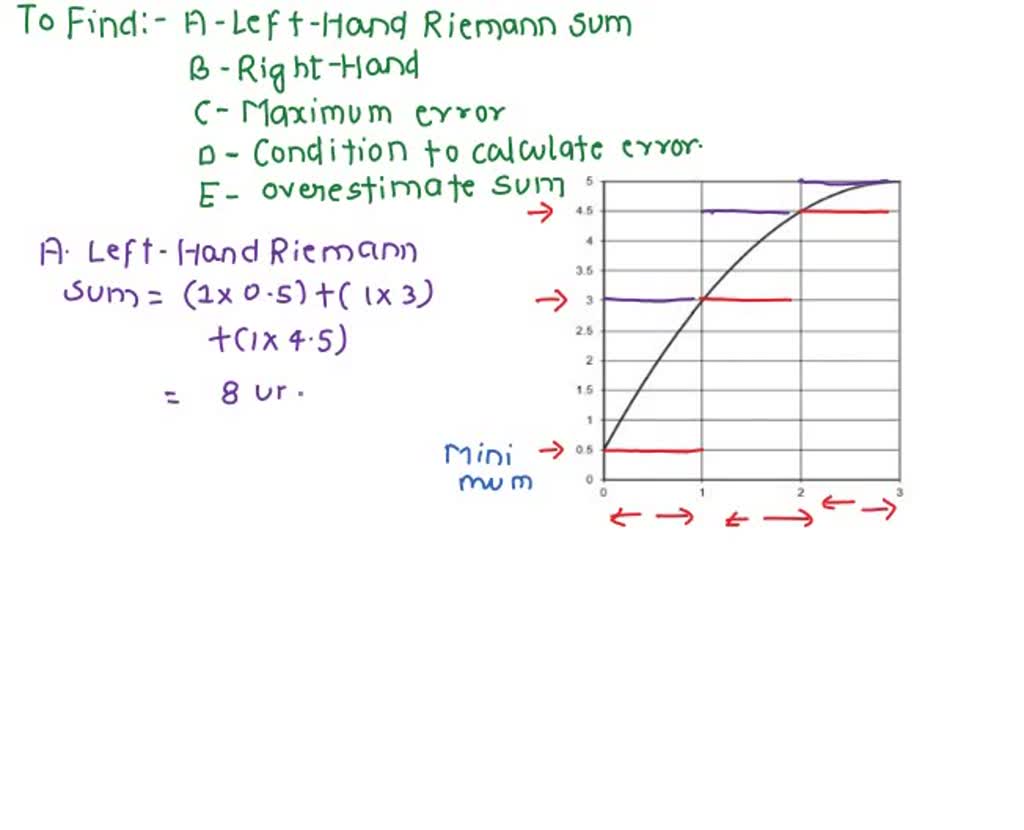 To Find:- A-Left-Hand Riemann sum
B-Right-Hand
C- Maximum error
D- Condition to calculate error.
E- overestimate sum
A. Left-Hand Riemann
sum = (1x 0.5)+( 1x 3)
+(1x 4.5)
= 8 ur.
5
4.5
4
3.5
3
2.5
2
1.5
1
0.5
0
0 1 2 3
Mini
mum